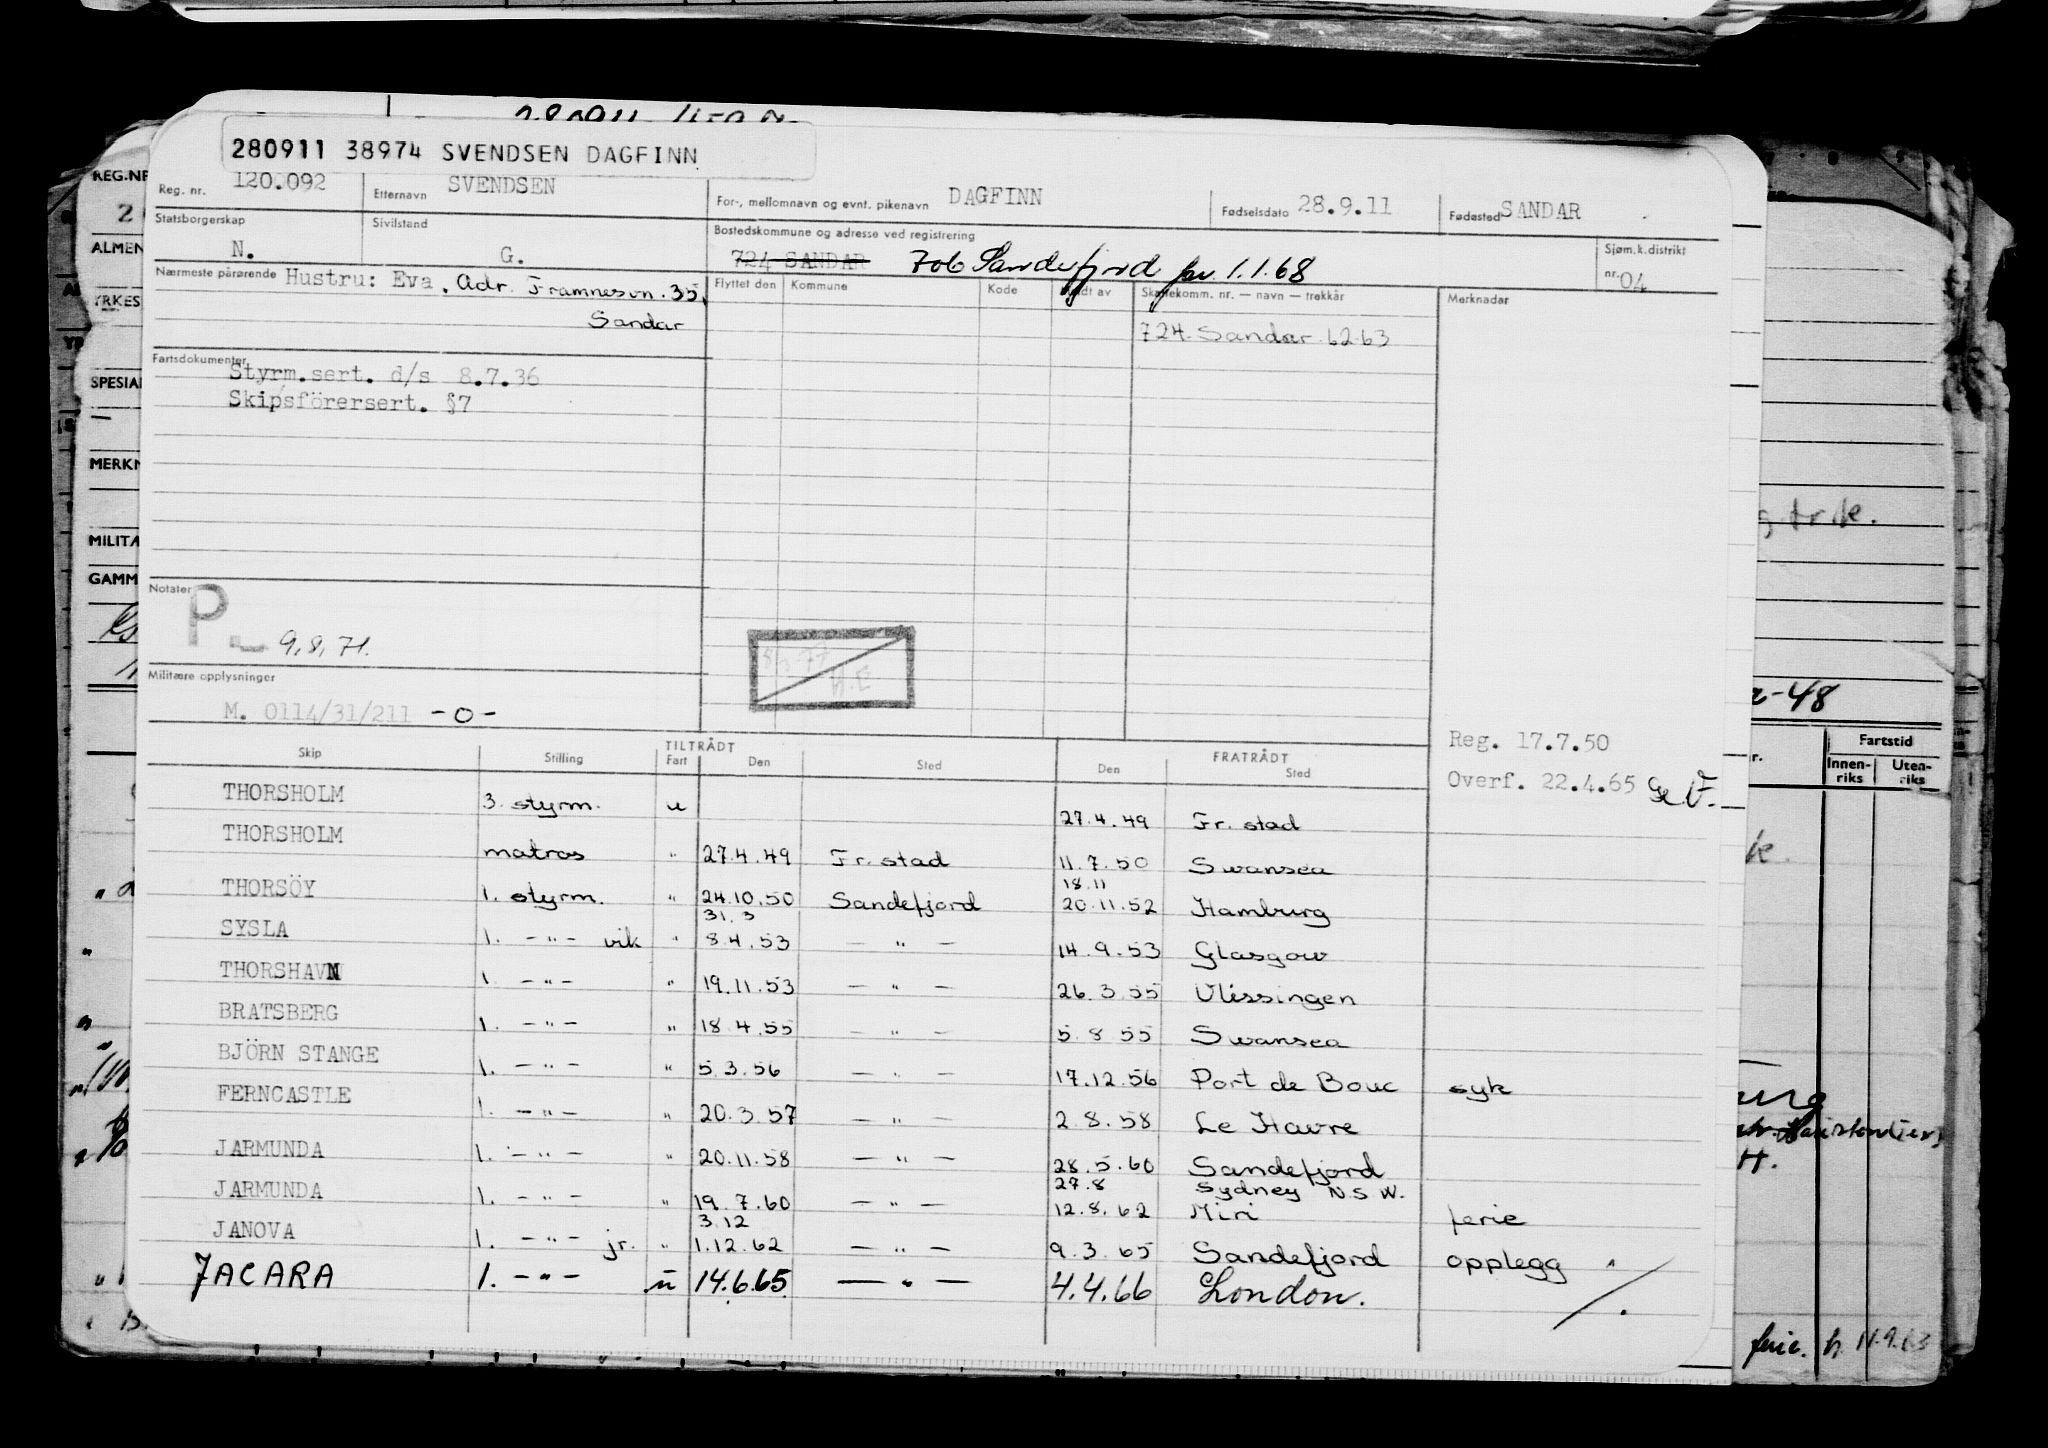 280911 38974 SVENDSEN DAGFINN
REG.NR
Reg. nr. 120.092 Etternavn SVENDSEN For-, mellomnavn og evnt. pikenavn DAGFINN Fødselsdato 28.9.11 Fødested SANDAR
Statsborgerskap N. Sivilstand G. Bostedskommune og adresse ved registrering 724 SANDAR 706 Sandefjord fra 1.1.68 Sjøm.k.distrikt nr. 04
Nærmeste pårørende Hustru: Eva. Adr. Framnesvn. 35,
Sandar
Flyttet den Kommune Kode Skattekomm. nr. — navn — trekkår Merknader
724 Sandar 62 63
Fartsdokumenter
Styrm.sert. d/s 8.7.36
Skipsförersert. §7
Notater
P. 9.8.71.
Militære opplysninger
M. 0114/31/211 -0-
Reg. 17.7.50
Overf. 22.4.65
Skip Stilling TILTRÅDT Fart Den Sted FRATRÅDT Den Sted
THORSHOLM 3. styrm. u 27.4.49 Fr. stad
THORSHOLM matros " 27.4.49 Fr. stad 11.7.50 Swansea
THORSÖY 1. styrm. " 24.10.50 Sandefjord 18.11 20.11.52 Hamburg
SYSLA 1. -"- vik " 31.3 8.4.53 — " — 14.9.53 Glasgow
THORSHAVN 1. -"- " 19.11.53 — " — 26.3.55 Vlissingen
BRATSBERG 1. -"- " 18.4.55 — " — 5.8 55 Swansea
BJÖRN STANGE 1. -"- " 5.3.56 — " — 17.12.56 Port de Bouc syk
FERNCASTLE 1. -"- " 20.3.57 — " — 2.8.58 Le Havre
JARMUNDA 1. -"- " 20.11.58 — " — 28.5.60 Sandefjord
JARMUNDA 1. -"- " 19.7.60 — " — 27.8 Sydney N.S.W. 12.8.62 Miri ferie
JANOVA 1. -"- jr. " 3.12 1.12.62 — " — 9.3.65 Sandefjord opplegg
JACARA 1. -"- u 14.6.65 — " — 4.4.66 London.
ALMEN
YRKES
SPESIAL
MERKN
MILITÆ
GAMM
-48
Fartstid
Innen-riks Uten-riks
ferie.